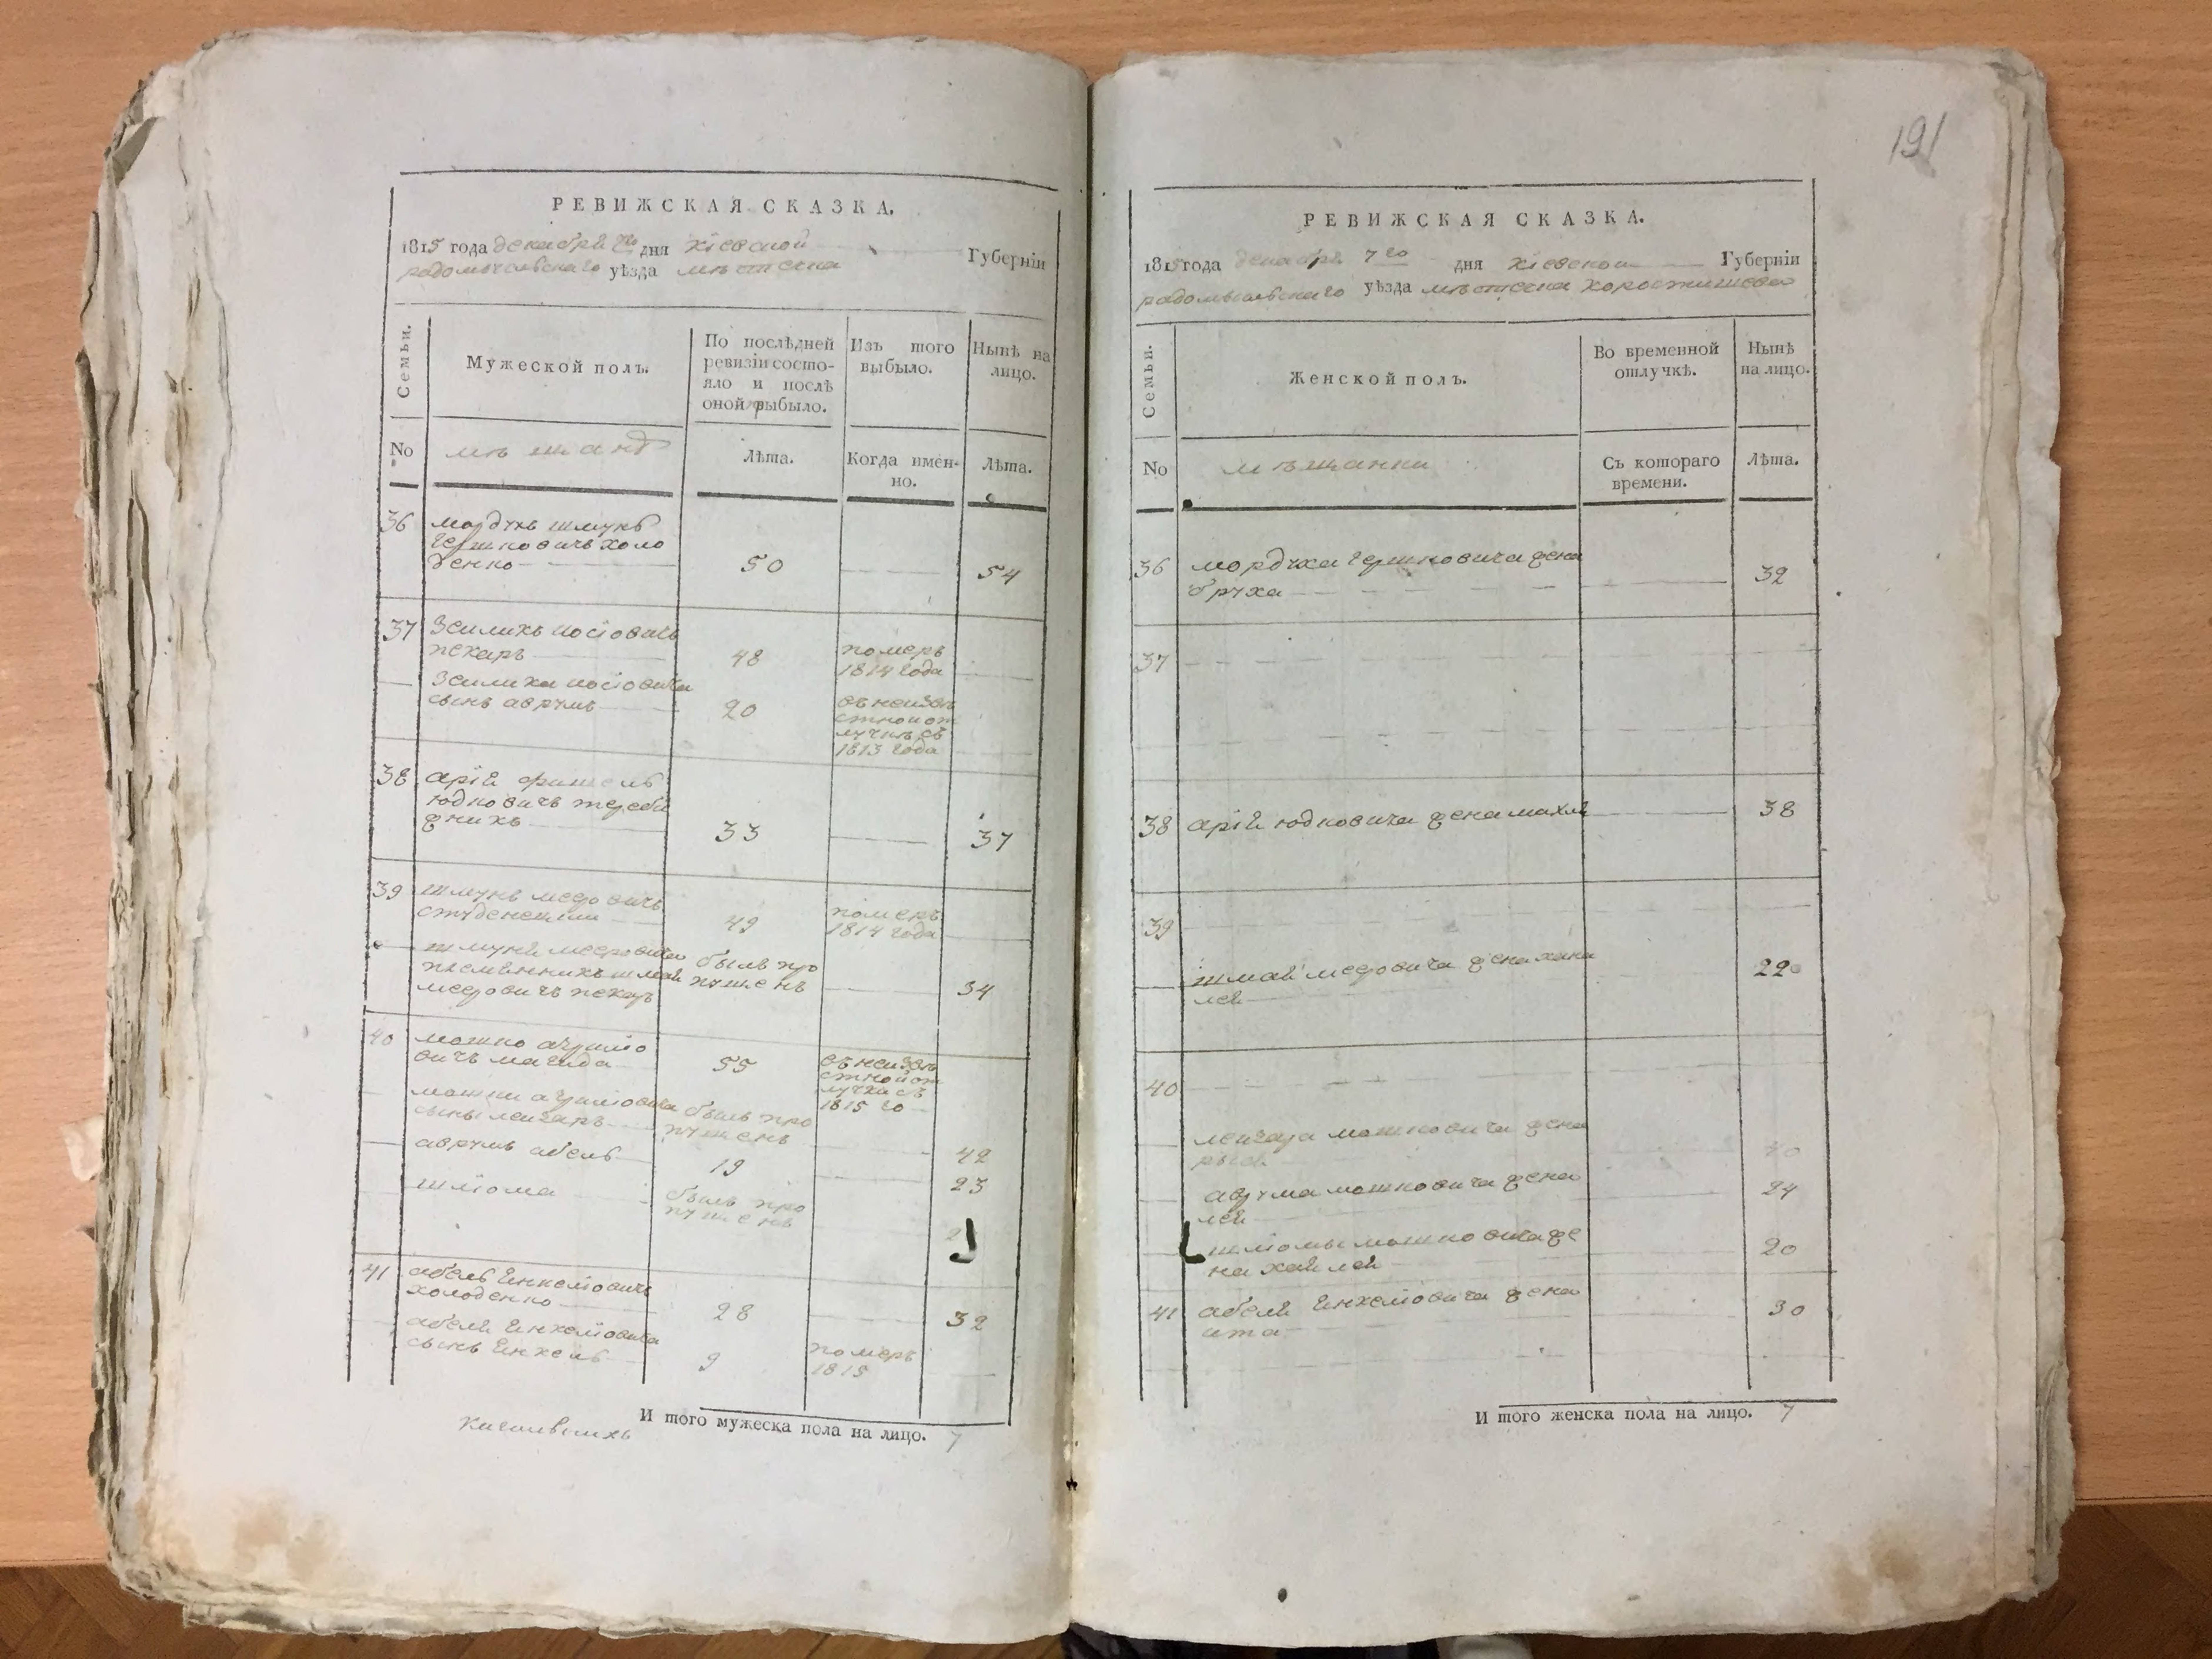 191
РЕВИЖСКАЯ СКАЗКА.
1815 года декабря 7го дня кіевской Губерніи
радомысльскаго уѣзда мѣстечка
Семьи.
Мужеской полъ.
По послѣдней ревизіи состояло и послѣ оной выбыло.
Изъ того выбыло.
Нынѣ на лицо.
No
мѣщанъ
Лѣта.
Когда имен-
но.
Лѣта.
36 мордухъ шмунь
гершковичъ холо
денко 50 54
37 зейликъ иосіовичъ
пекаръ 48 померъ
1814 года
зейлика иосіовича
сынъ аврумъ 20 въ неизвѣ
стной от
лучкѣ съ
1813 года
38 арій фишель
юдковичъ жереб
никъ 33 37
39 шмунь меровичъ
49 померъ
1814 года
шмуня меровича былъ про
племянникъ шмай пущенъ
меровичъ пекаръ 34
40 мошко
вичъ магида 55 въ неизвѣ
стной от
лучки съ
1815 го
мошки
сыны лейзаръ былъ про
пущенъ 42
аврумъ абель 19 23
шліома былъ про
пущенъ
41 абель Инкеліовичъ
холоденко 28 32
абеля Инкеліовича
сынъ Инкель 9 померъ
1815
И того мужеска пола на лицо. 7
РЕВИЖСКАЯ СКАЗКА.
1815 года декабря 7го дня кіевской Губерніи
радомысльскаго уѣзда мѣстечка коростишева
Семьи.
Женской полъ.
Во временной отлучкѣ.
Нынѣ на лицо.
No
мѣщанки
Съ котораго
времени.
Лѣта.
36 мордуха гершковича жена
бруха 32
37
38 арій юдковича жена махля 38
39
шмай меровича жена хана
лея 22
40
лейзара мошковича жена
40
аврума мошковича жена
лея 24
шліомы мошковича же
на хая лея 20
41 абеля Инкеліовича жена
ита 30
И того женска пола на лицо. 7